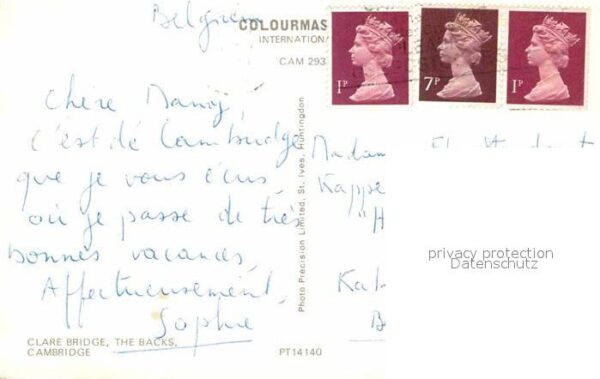 Belgium
COLOURMAS
INTERNATION
CAM 293
1P
7P
1P
Chère
c'est de Cambridge
que je vous écris
où je passe de très
bonnes vacances.
Affectueusement,
Sophie
Photo Precision Limited, St. Ives, Huntingdon
Madam
Kappe
"H
Ka
B
privacy protection
Datenschutz
CLARE BRIDGE, THE BACKS,
CAMBRIDGE
PT14140